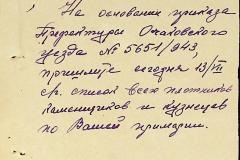 На основании приказа
Префектуры Очаковского
уезда № 5651/943,
пришлите сегодня 13/VII
с/г. список всех плотников
каменщиков и кузнецов
по Вашей примарии.